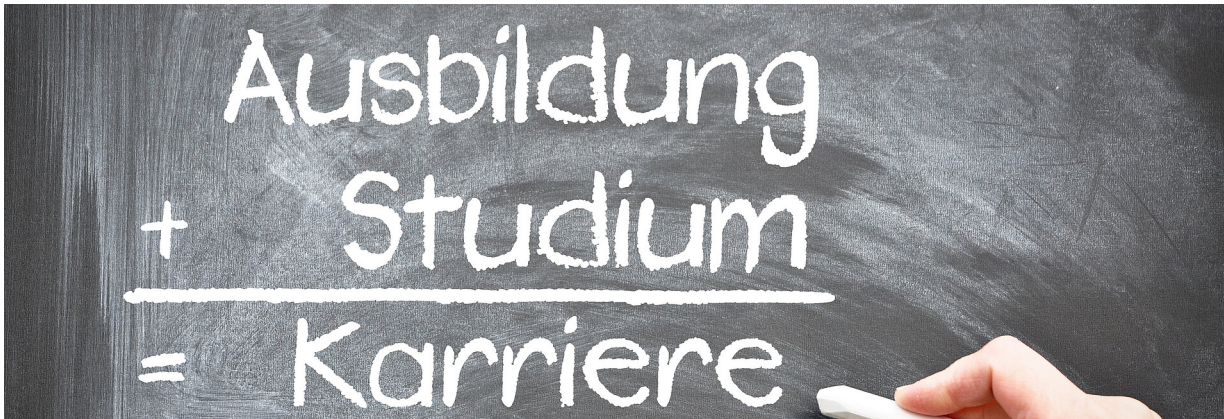 Ausbildung
+ Studium
= Karriere